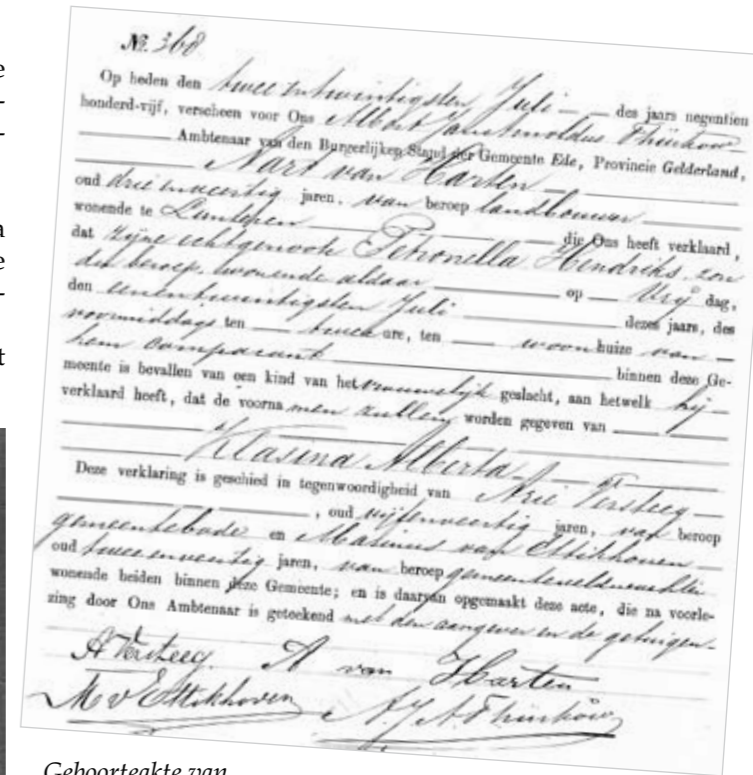 №. 368
Op heden den twee entwintigsten Juli des jaars negentien
honderd-vijf, verscheen voor Ons Albert Thinkow
Ambtenaar van den Burgerlijken Stand der Gemeente Ede, Provincie Gelderland,
Aart van Harten
oud drie enveertig jaren, van beroep landbouwer
wonende te Lunteren die Ons heeft verklaard,
dat zijne echtgenoote Petronella Hendriks, zon
der beroep, wonende aldaar op Vrij dag,
den eenentwintigsten Juli dezes jaars, des
voormiddags ten twee ure, ten woon huize van
hem comparant binnen deze Ge-
meente is bevallen van een kind van het vrouwelijk geslacht, aan hetwelk hij
verklaard heeft, dat de voorna men zullen worden gegeven van
Klasina Alberta
Deze verklaring is geschied in tegenwoordigheid van Arie Versteeg
, oud vijfenveertig jaren, van beroep
gemeentebode en Marinus van Ettikhoven
oud tweeenveertig jaren, van beroep gemeenteveldwachter
wonende beiden binnen deze Gemeente; en is daarvan opgemaakt deze acte, die na voorle-
zing door Ons Ambtenaar is geteekend met den aangever en de getuigen.
A Versteeg. A van Harten
M v Ettikhoven A. J. A. Thinkow
Geboorteakte van